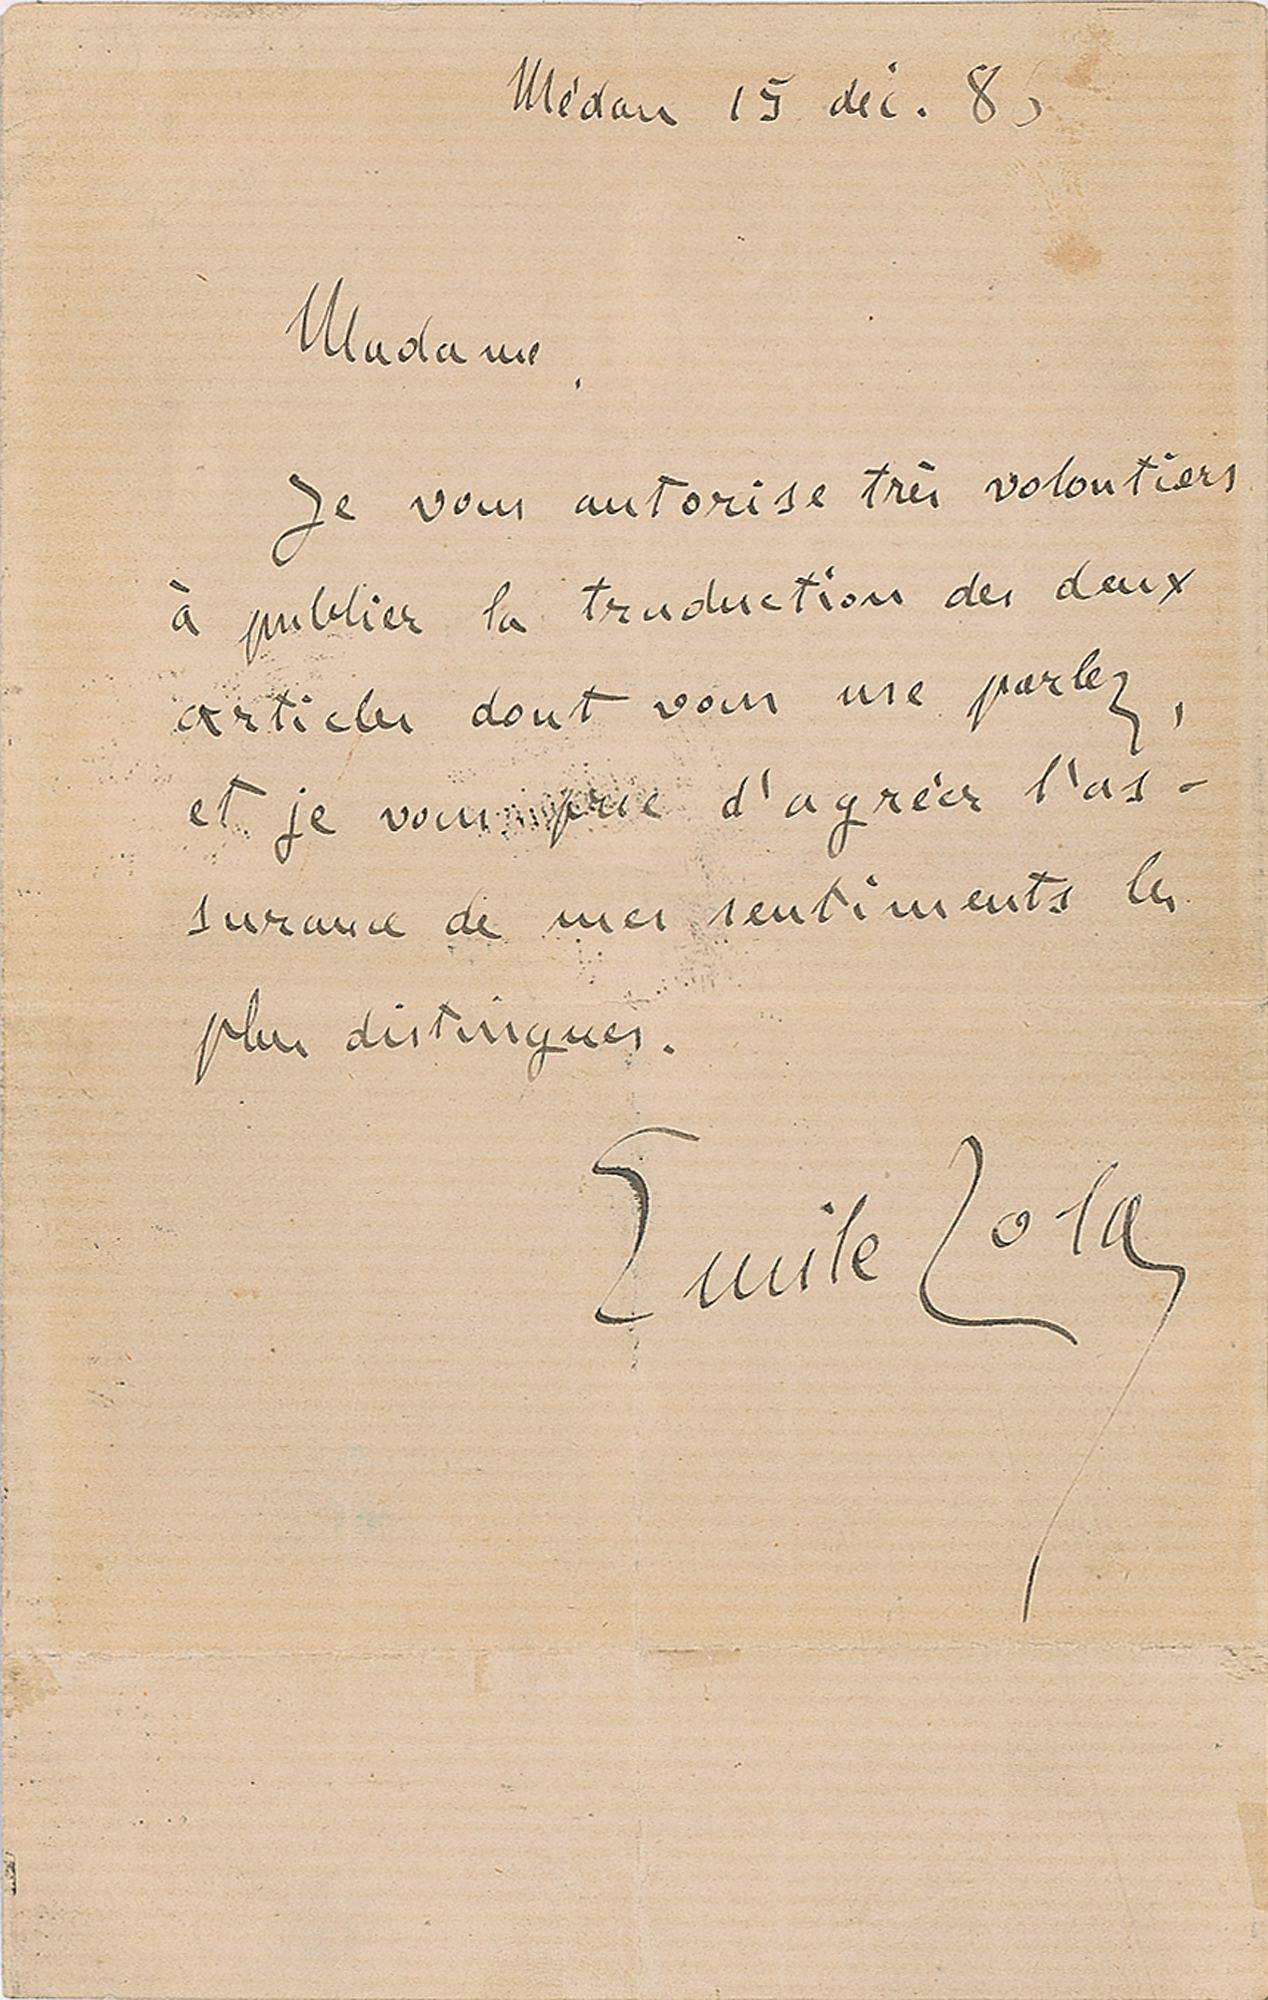 Médan 15 déc. 85
Madame,
Je vous autorise très volontiers
à publier la traduction des deux
articles dont vous me parlez,
et je vous prie d'agréer l'as-
surance de mes sentiments les
plus distingues.
Emile Zola